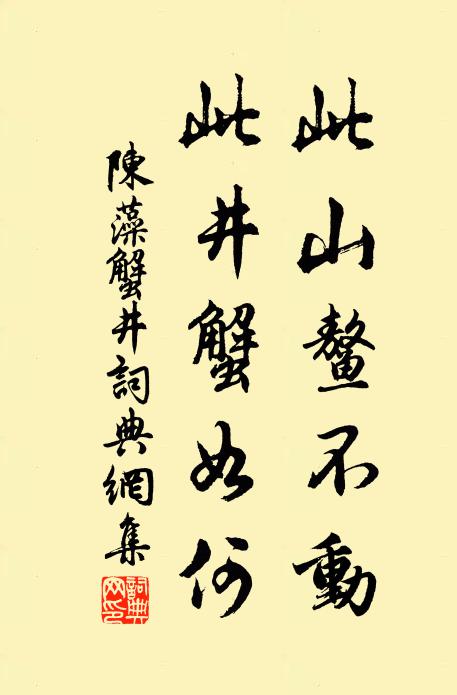 此山鳌不動
此井蟹如何
陳藻蟹井詞典網集
詞典网印